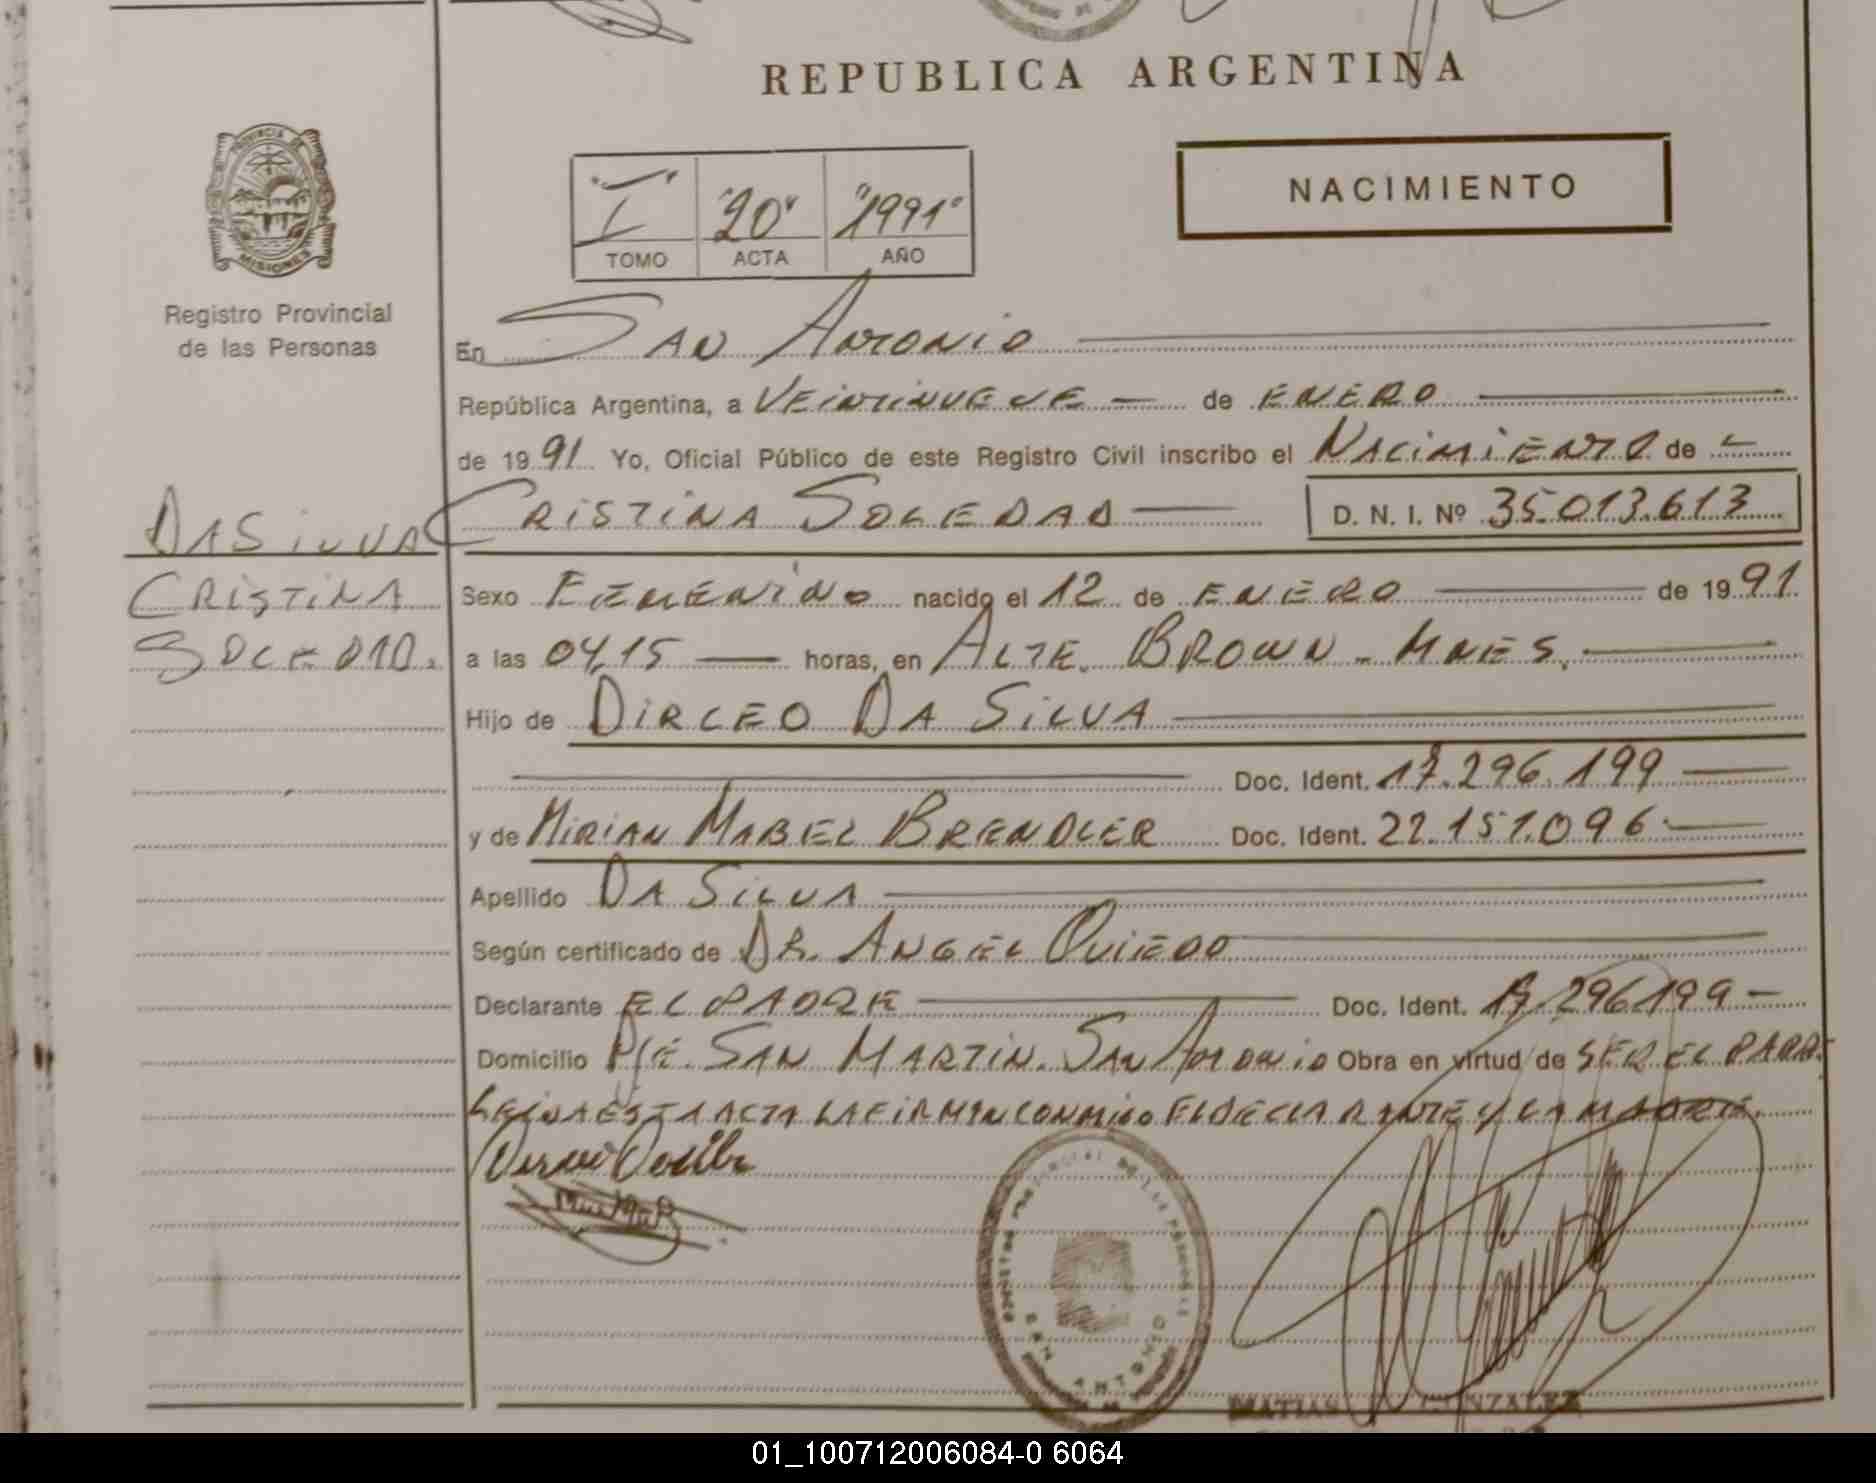 REPUBLICA ARGENTINA
PROVINCIA DE
MISIONES
Registro Provincial
de las Personas
"I" "20" "1991"
TOMO ACTA AÑO
NACIMIENTO
En SAN ANTONIO
República Argentina, a VEINTINUEVE de ENERO
de 1991 Yo, Oficial Público de este Registro Civil inscribo el NACIMIENTO de
CRISTINA SOLEDAD D. N. I. Nº 35.013.613
DA SILVA
CRISTINA
SOLEDAD.
Sexo FEMENINO nacido el 12 de ENERO de 1991.
a las 04,15 horas, en ALTE. BROWN - MNES.
Hijo de DIRCEO DA SILVA
Doc. Ident. 17.296.199
y de MIRIAN MABEL BRENDLER Doc. Ident. 22.151.096
Apellido DA SILVA
Según certificado de DR. ANGEL OVIEDO
Declarante EL PADRE Doc. Ident. 17.296.199
Domicilio PJE. SAN MARTIN. SAN ANTONIO Obra en virtud de SER EL PADRE
LEIDA ESTA ACTA LA FIRMAN CONMIGO EL DECLARANTE Y LA MADRE.
SAN ANTONIO
GONZALEZ
01_100712006084-0 6064